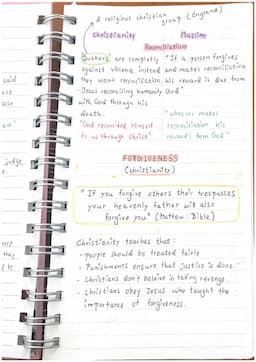 a religious christian
group (England)
Christianity Muslim
Reconciliation
Quakers are completly
against violence instead
they want reconciliation.
Jesus reconciling humanity
with God through his
death.
"God reconciled himself
to us through Christ"
"If a person forgives
and makes reconciliation
his reward is due from
God."
"whoever makes
reconciliation, his
reward is from God"
FORGIVENESS
(christianity)
"If you forgive others their trespasses
your heavenly father will also
forgive you" (Mattew: Bible)
Christianity teaches that:
- people should be treated fairly
- Punishments ensure that justice is done.
- Christians don't beleive in taking revenge.
- christians obey Jesus who taught the
importance of forgiveness.
said
judge,